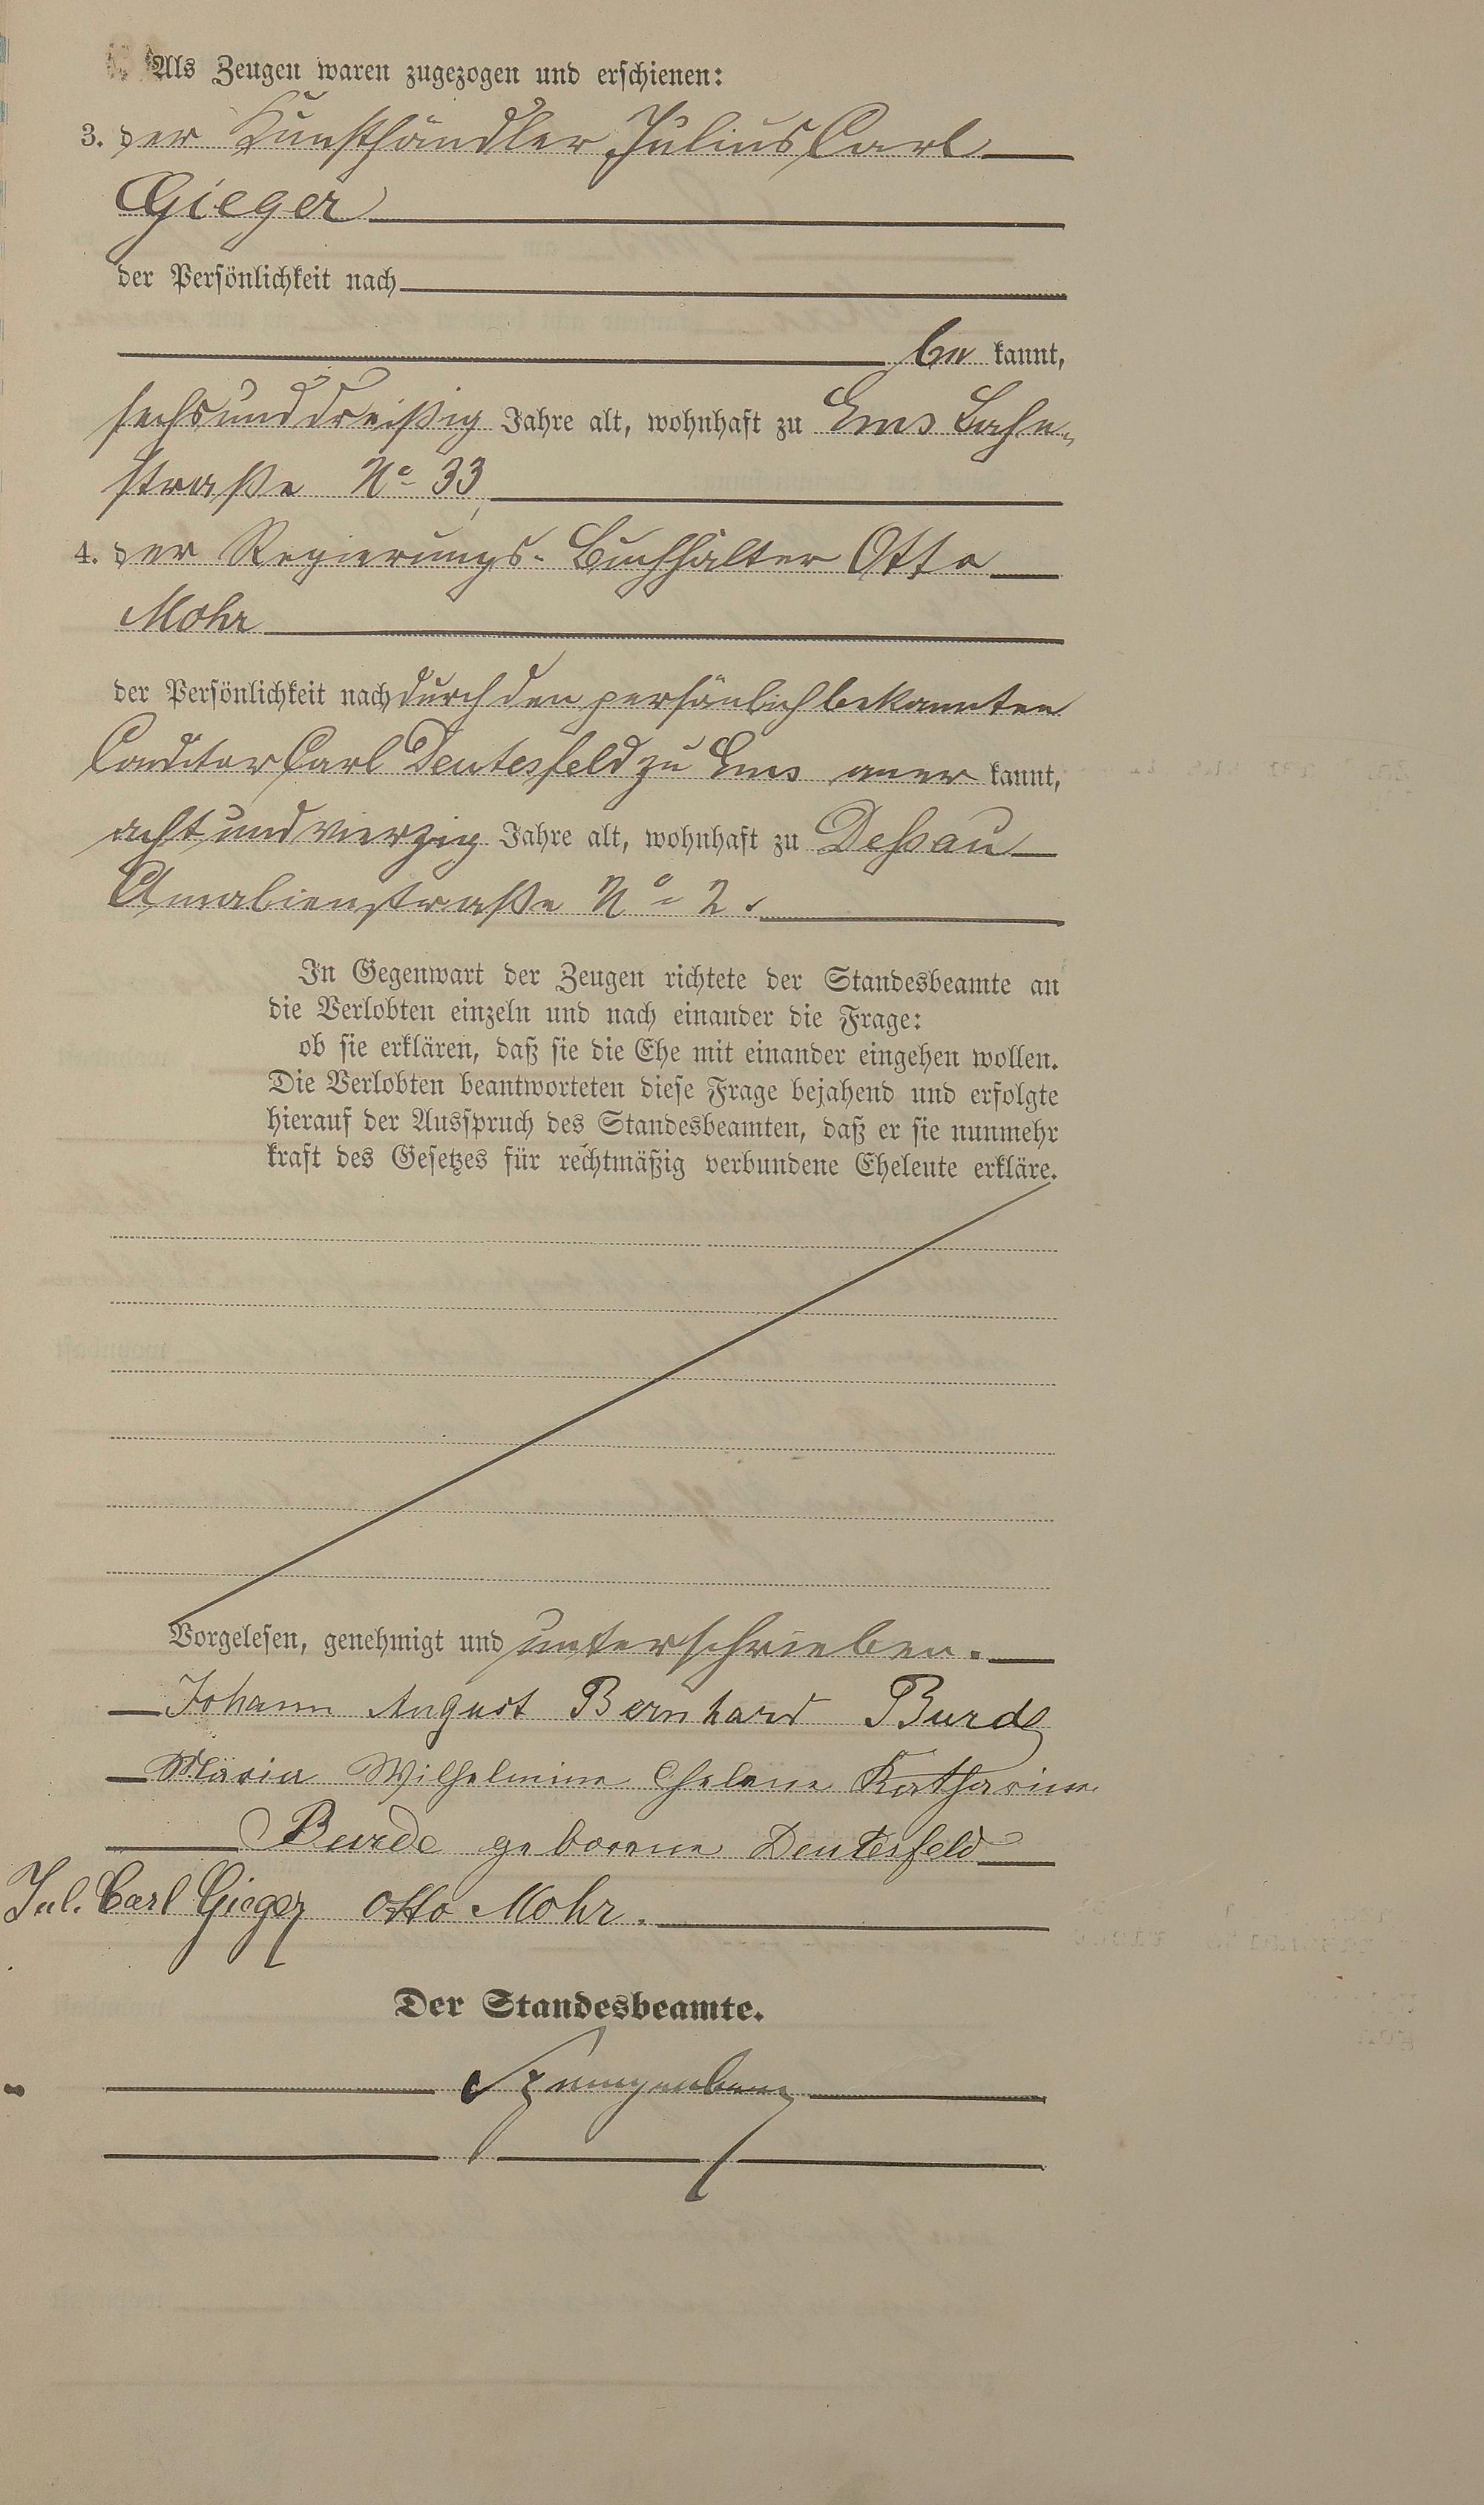 Als Zeugen waren zugezogen und erschienen:
3. der Kunsthändler Julius Carl
Gieger
der Persönlichkeit nach
be kannt,
sechsunddreißig Jahre alt, wohnhaft zu Ems Lahn-
straße No 33,
4. der Regierungs-Buchhalter Otto
Mohr
der Persönlichkeit nach durch den persönlich bekannten
Conditor Carl Deutesfeld zu Ems aner kannt,
acht und vierzig Jahre alt, wohnhaft zu Deßau
Amalienstraße No 2.
In Gegenwart der Zeugen richtete der Standesbeamte an
die Verlobten einzeln und nach einander die Frage:
ob sie erklären, daß sie die Ehe mit einander eingehen wollen.
Die Verlobten beantworteten diese Frage bejahend und erfolgte
hierauf der Ausspruch des Standesbeamten, daß er sie nunmehr
kraft des Gesetzes für rechtmäßig verbundene Eheleute erkläre.
Vorgelesen, genehmigt und unterschrieben.
Johann August Bernhard Burde
Maria Wilhelmine Helene Katharine
Burde geborene Deutesfeld
Jul. Carl Gieger Otto Mohr.
Der Standesbeamte.